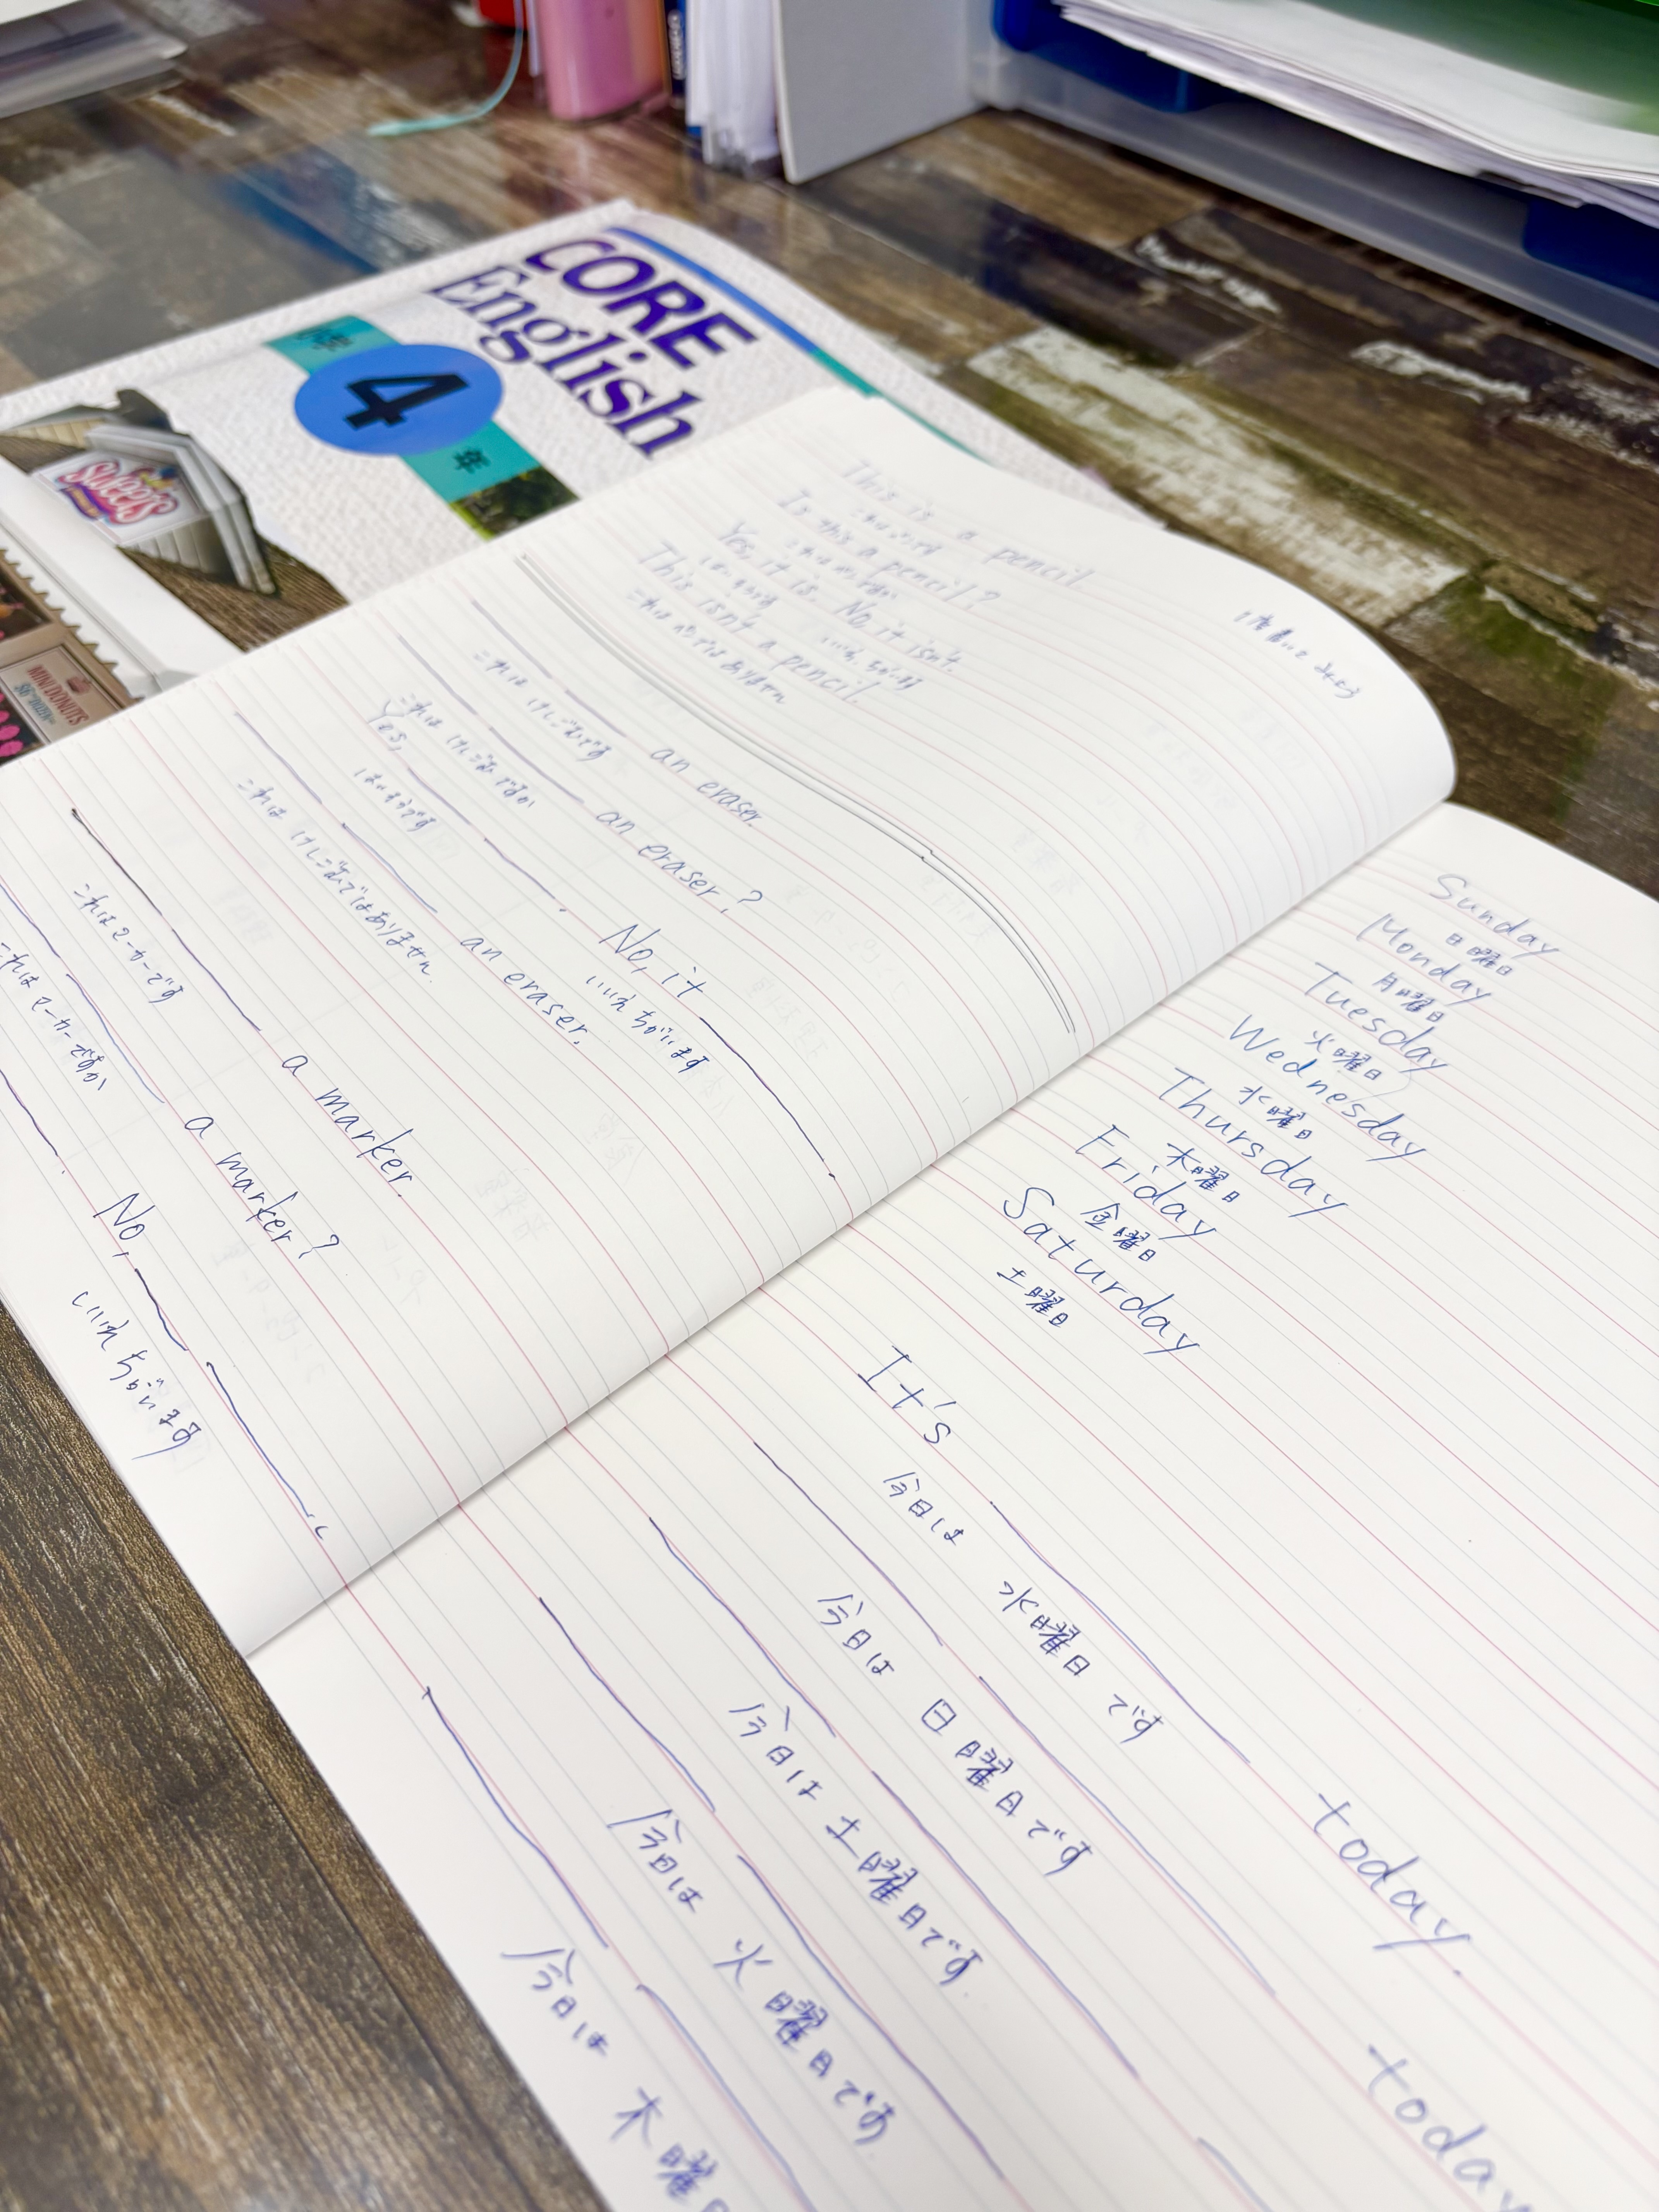 CORE
English
小学
4
年
Sweets
MINI DONUTS
This is a pencil
Is this a pencil?
Yes, it is. No, it isn't.
はい そうです いいえ ちがいます
This isn't a pencil.
これは けしごむです
an eraser.
これは けしごむですか
an eraser?
Yes,
はい そうです
No, it
いいえ ちがいます
これは けしごむではありません
an eraser.
これは マーカーです
a marker.
これは マーカーですか
a marker?
No,
いいえ ちがいます
Sunday
日曜日
Monday
月曜日
Tuesday
火曜日
Wednesday
水曜日
Thursday
木曜日
Friday
金曜日
Saturday
土曜日
It's today.
今日は 水曜日 です
today
今日は 日曜日です
今日は 土曜日です
今日は 火曜日です
今日は 木曜日